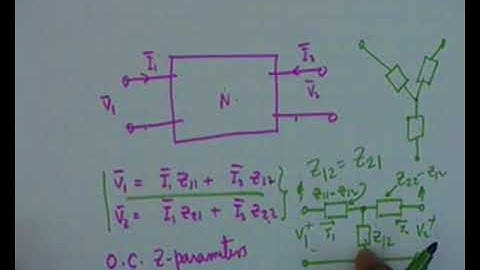 I̅₁
I̅₂
V̅₁
N
V̅₂
V̅₁ = I̅₁ Z₁₁ + I̅₂ Z₁₂
V̅₂ = I̅₁ Z₂₁ + I̅₂ Z₂₂
O.C. Z-parameters
Z₁₂ = Z₂₁
Z₁₁-Z₁₂
Z₂₂-Z₁₂
V₁
+
I̅₁
I₂
V₂
+
Z₁₂
-